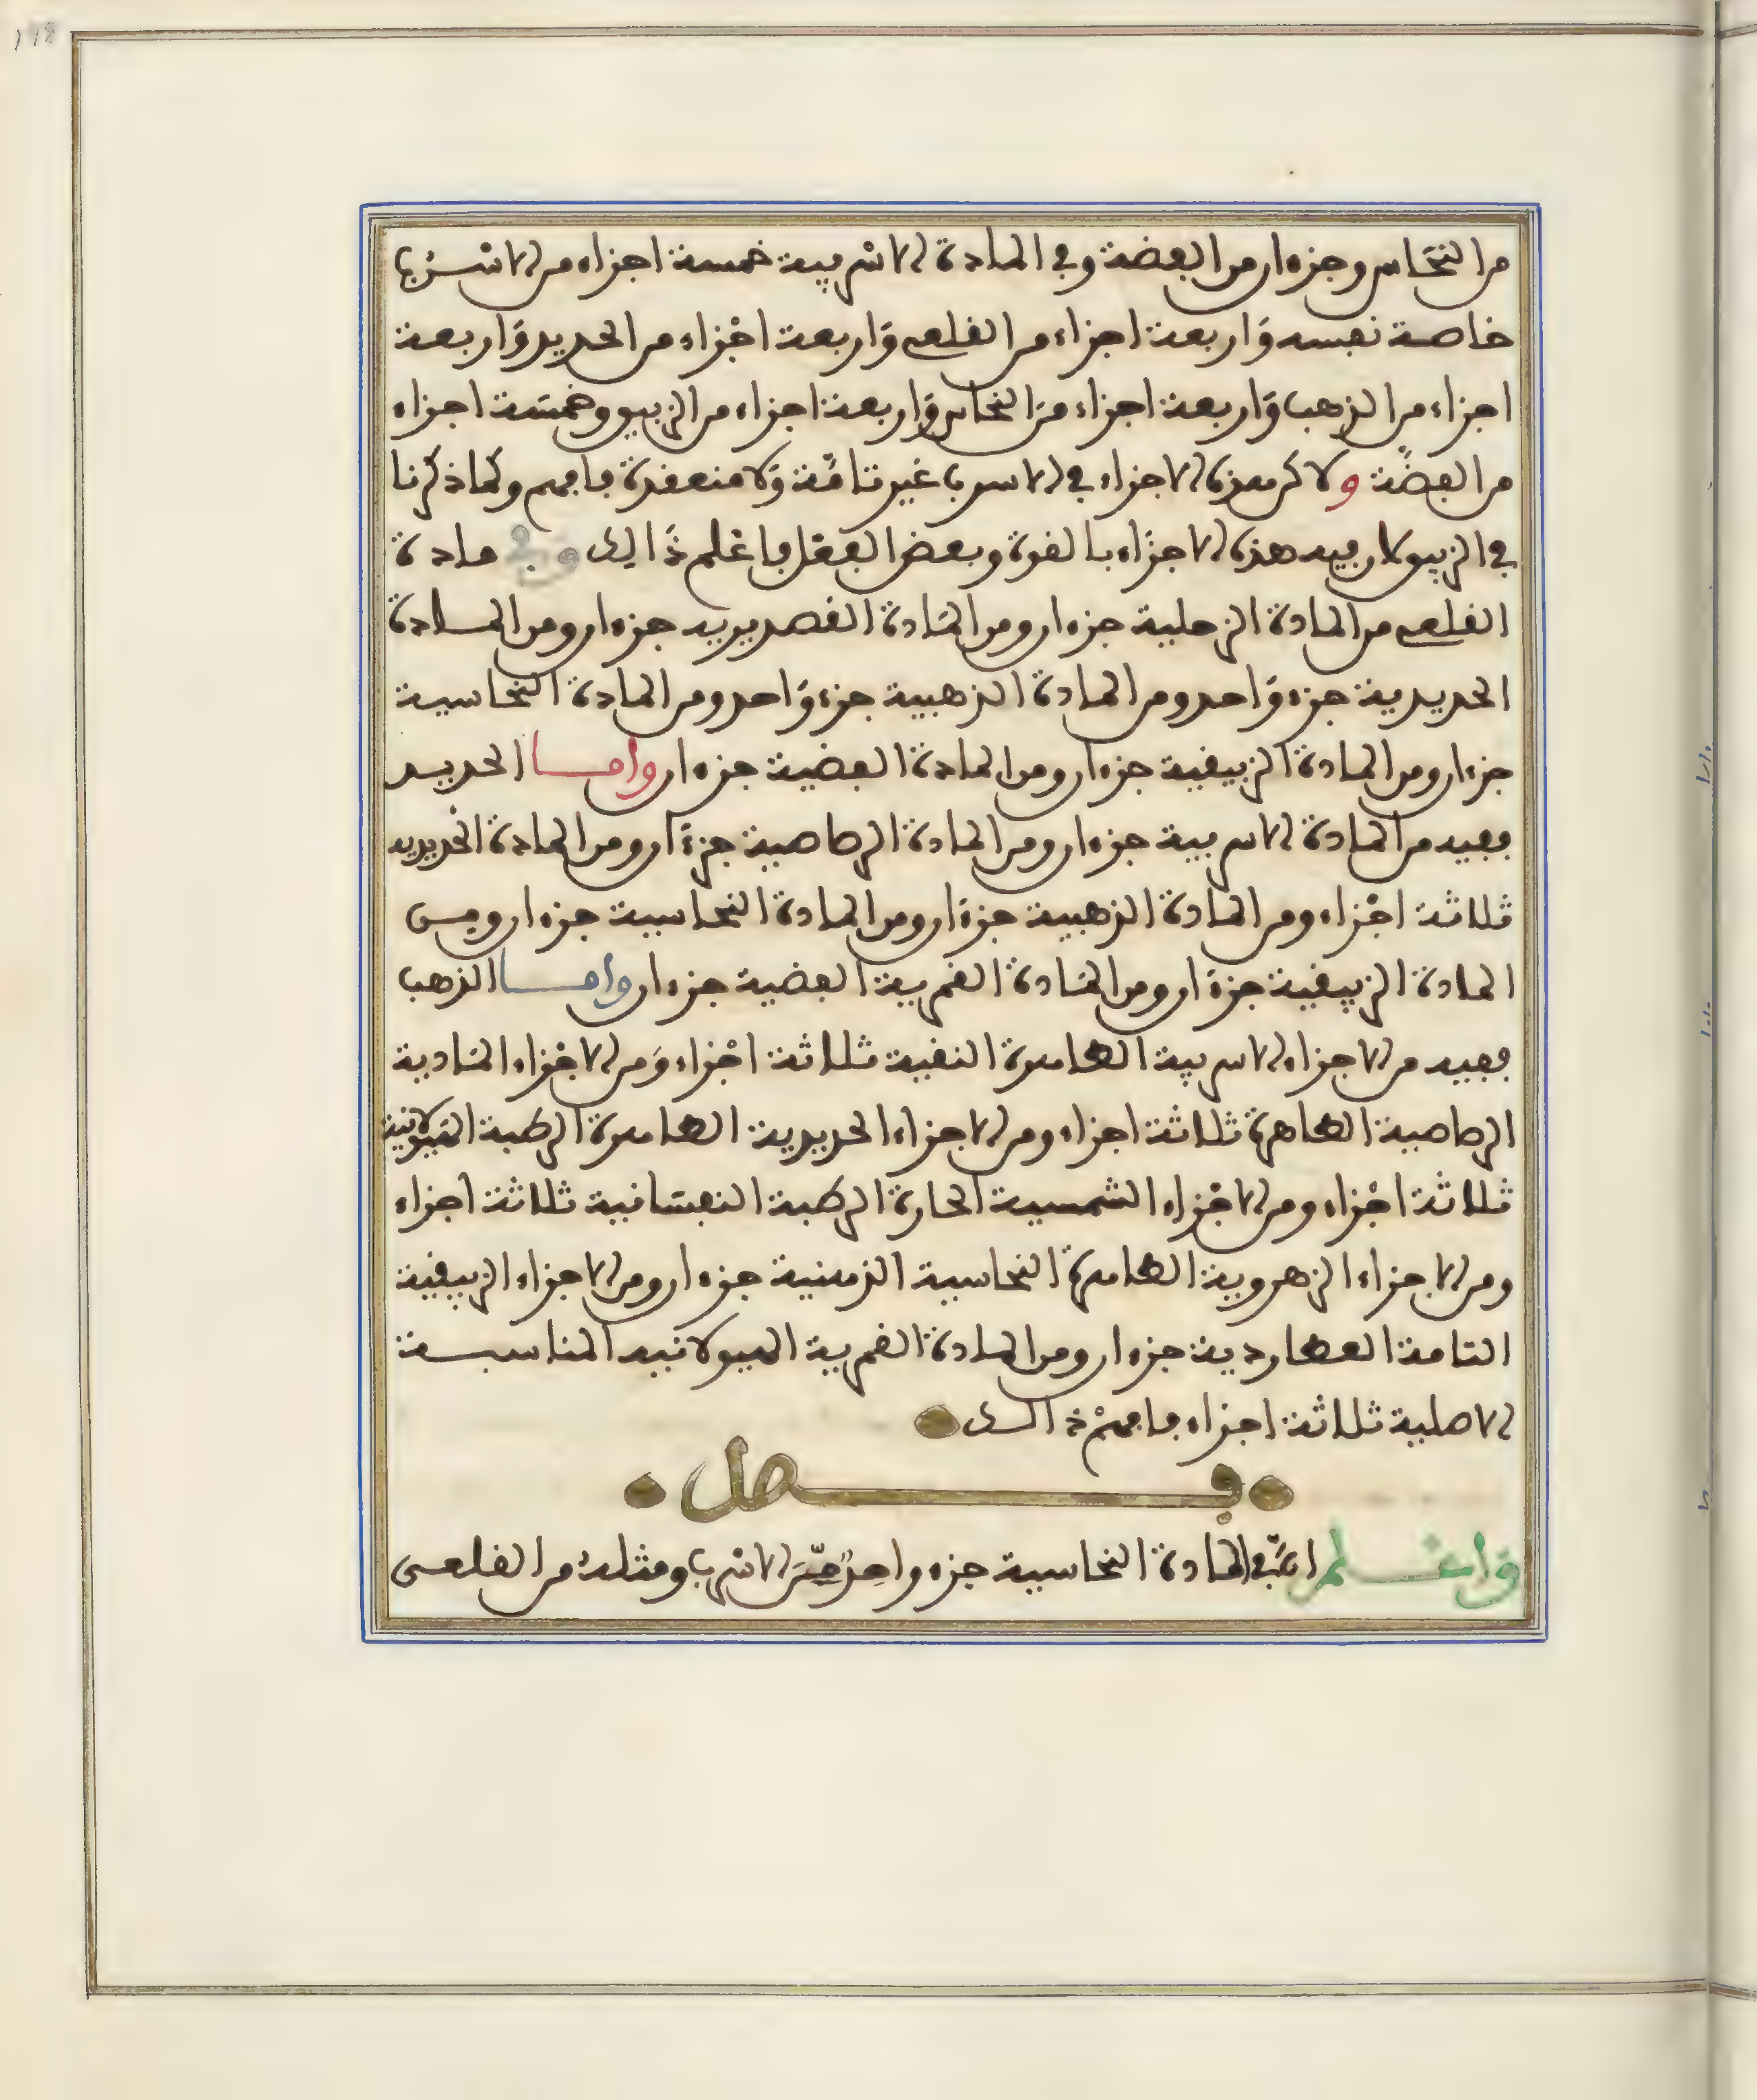 من النحاس وجزءان من الفضة وفي المادة الاسربية خمسة اجزاء من الاسْرُب
خاصة نفسه وَاربعة اجزاء من القلعي وَاربعة اجْزاء من الحديد وَاربعة
اجزاء من الذهب وَاربعة اجزاء منَ النحاس وَاربعة اجزاء من الزيبق وخمسَة اجزاء
من الفضَّة ولاكن هذه الاجزاء في الاسرب غير تامَّة وَلا منعقدة فافهم وكما ذكرنا
في الزيبق لان فيه هذه الاجزَاء بالقوة وبعض الفعل فاعْلم ذَالك وفي مادة
القلعي من المادة الزحلية جزءان ومن المَادة القصديريه جزءان ومن المادة
الحديدية جزء وَاحد ومن المادة الذهبية جزء وَاحد ومن المادة النحاسية
جزءان ومن المادة الزيبقية جزءان ومن المادة الفضية جزءان واما الحديد
ففيه من المادة الاسربية جزءان ومن المادة الرصاصية جزءَان ومن المادة الحديديه
ثلاثة اجْزاء ومن المادة الذهبية جزءَان ومن المادة النحاسية جزءان ومن
المادة الزيبقية جزءَان ومن المَادة القمرية الفضية جزءان واما الذهب
ففيه من الاجزاء الاسربية الطاهرة النقية ثلاثة اجْزاء وَمن الاجْزاء المَادية
الرصاصية الطاهرة ثلاثة اجزاء ومن الاجزاء الحديدية الطاهرة الرطبة الهَيولانية
ثلاثة اجْزاء ومن الاجْزاء الشمسية الحارة الرطبة النفسَانية ثلاثة اجزاء
ومن الاجزاء الزهروية الطاهرة النحاسية الذهنية جزءان ومن الاجزاء الزيبقية
التامة العطاردية جزءان ومن المادة القمرية الهيولانيه المناسبة
الاصلية ثلاثة اجزاء فافهمْ ذالك
فصل
وَاعْلم انَّ في المادة النحاسية جزء واحدٌ منَ الاسْرب ومثلهُ من القلعي